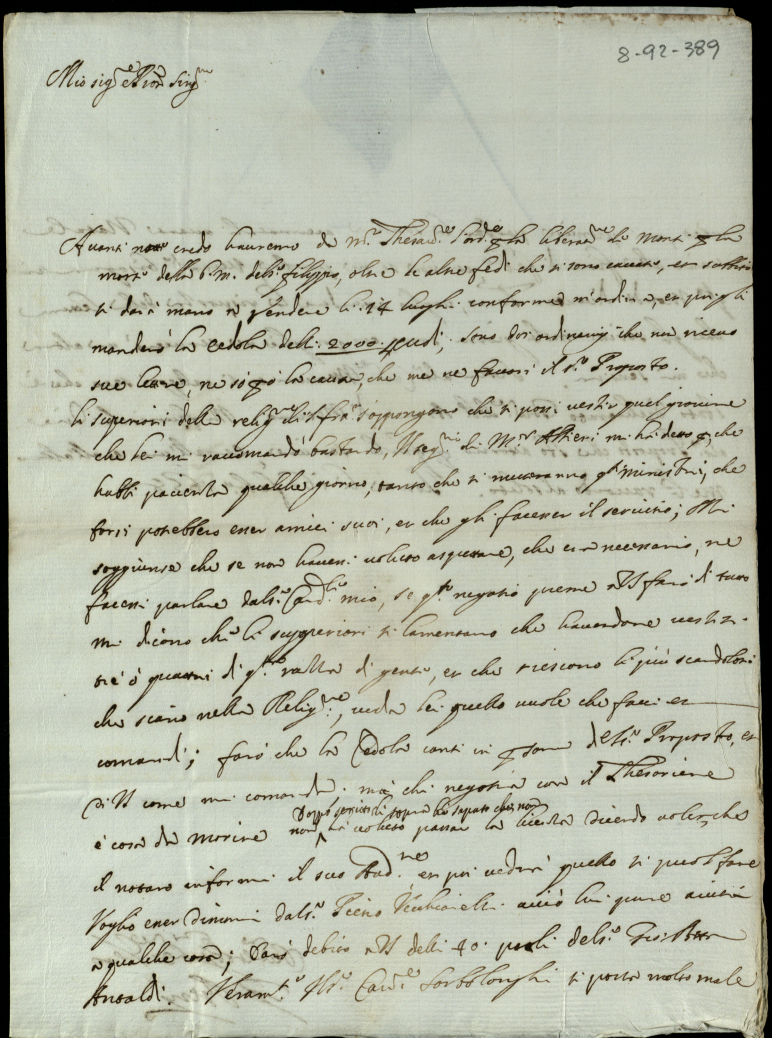 8-92-389
Mio sig.re e Pron Sing.mo
Avanti credo hauremo da m.r Thesau.re l'ord.e p la liberat.ne de monti p la
morte della b.m. del s.r filippo, oltre le altre fedi che si sono cavate, et subbito
si darà mano a vendere li 14 luoghi conforme m'ordina, et poi gli
manderò la Cedola delli 2000 scudi, sono doi ordinarij che non ricevo
sue lettere, ne sò p ò la causa, che me ne favorì il s.r Proposto.
li superiori della relig.ne di suppongono che si possi vestir quel giovine
che lei mi raccomandò bastardo, Il seg.rio di M.r Altieri mi ha detto p che
habbi patienza qualche giorno, tanto che si muteranno q.ti ministri, che
forsi potrebbero esser amici suoi, et che gli facesser il servitio; Mi
soggiunse che se non havessi voluto aspettare, che era necessario, ne
facessi parlare dal s.r Card.le mio, se q.to negotio preme a VS farò di tutto
mi dicono che li superiori si lamentano che havendone vestiti
trè ò quattri di q.ta razza di gente, et che riescono li più scandolosi
che siano nella Relig.ne, veda lei quello vuole che facci et
comandi; farò che la Cedola canti in psona del s.r Proposto, et
di VS come mi comanda. mà chi negotia con il Thesoriere
è cosa da morire
Doppo scritto di sopra hò saputo che non
non hà voluto passar la licenza dicendo voler che
il notaro informi il suo Aud.re et poi vedrà quello si puol fare
Voglio esser dinanzi dal s.r Pietro acciò lui pure aiuti
a qualche cosa; Darò debito a VS delli 40 paoli del s.r Gio: Batta
Ansaldi. Veram.te Il s.r Card.le si porta molto male